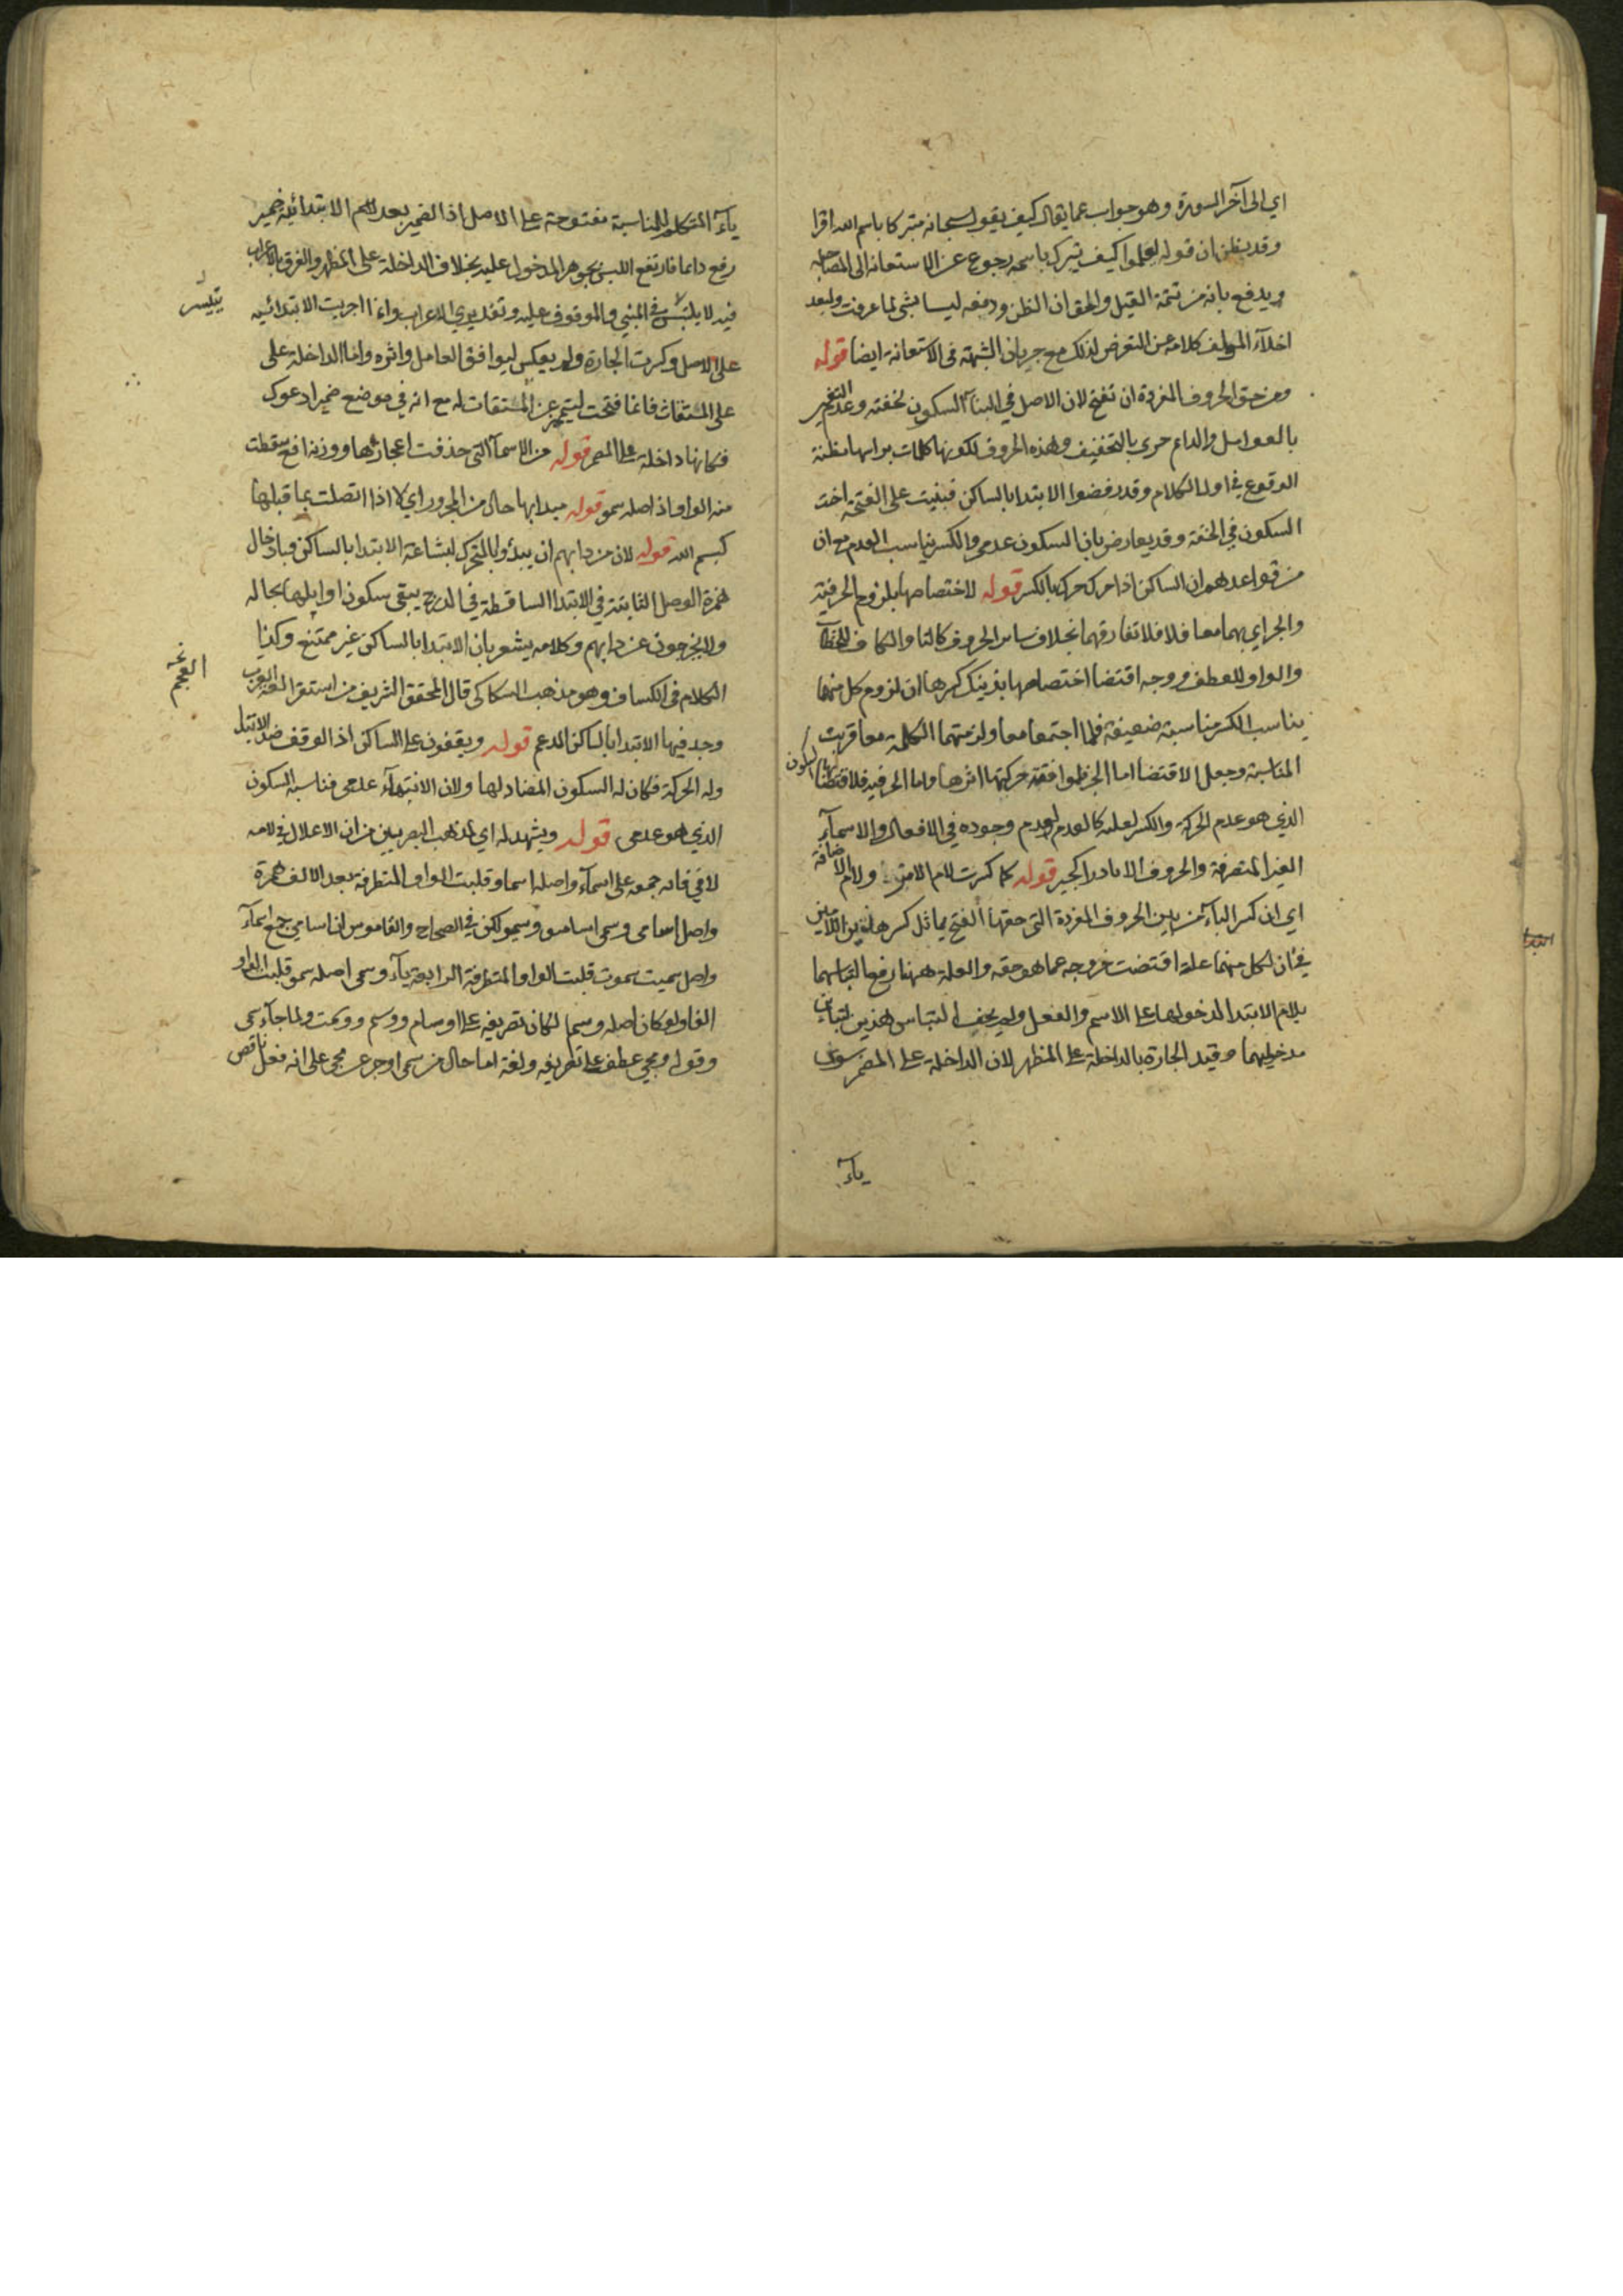 اي الى آخر السورة وهو جواب عما يقال كيف يقول سبحانه متبركا باسم الله اقرا
وقد يظن ان قوله ليعلموا كيف يتبرك باسمه رجوع عن الاستعانة الى المصاحبة
ويدفع بانه من تتمة القيل والحق ان الظن ودفعه ليسا بشئ لما عرفت وليعد
اخلآء المولف كلامه عن التعرض لذلك مع جريان الشبهة في الاستعانة ايضا قوله
ومن حق الحروف المفردة ان تفتح لان الاصل في البنآ السكون لخفته وعدم التغير
بالعوامل والدائم حري بالتخفيف وهذه الحروف لكونها كلمات براسها مظنة
الوقوع في اول الكلام وقد رفضوا الابتدا بالساكن فبنيت على الفتحة اخت
السكون في الخفة وقد يعارض بان السكون عدمي والكسر يناسب العدم مع ان
من قواعدهم ان الساكن اذا حرك حرك بالكسر قوله لاختصاصها بلزوم الحرفية
والجر اي بهما معا فلا تفارقهما بخلاف ساير الحروف كالتا والكاف للخطآب
والواو للعطف ووجه اقتضا اختصاصها بذينك كسرها ان لزوم كل منهما
يناسب الكسر مناسبة ضعيفة فلما اجتمعا معا ولزمتهما الكلمة معا قربت
المناسبة وجعل الاقتضا اما الجر فلموافقة حركتها اثرها واما الحرفية فلاقتضائها السكون
الذي هو عدم الحركة والكسر لعلة كالعدم لعدم وجوده في الافعال والاسمآء
الغير المتصرفة والحروف الا نادرا كجير قوله كما كسرت لام الامر ولام الاضافة
اي ان كسر البآء من بين الحروف المفردة التي حقها الفتح يماثل كسر هاتين اللامين
في ان لكل منهما علة اقتضت خروجه عما هو حقه والعلة ههنا رفع التباسهما
بلام الابتدا لدخولها على الاسم والفعل ولم يخف التباس هذين لتباين
مدخوليهما وقيد الجارة بالداخلة على المظهر لان الداخلة على المضمر سوى
يآء
يآء المتكلم للمناسبة مفتوحة على الاصل اذ الضمير بعد لام الابتدائية ضمير
رفع دايما فارتفع اللبس بجوهر المدخول عليه بخلاف الداخلة على المظهر والفرق بالاعراب
فيه لا يتيسر في المبني والموقوف عليه وتقديري الاعراب وانما اجريت الابتدائية
على الاصل وكسرت الجارة ولم يعكس ليوافق العامل واثره واما الداخلة على
على المستغاث فانما فتحت ليتميز عن المستغاث له مع انه في موضع ضمير ادعوك
فكانها داخلة على المضمر قوله من الاسمآ التي حذفت اعجازها ووزنه افع سقطت
منه الواو اذ اصله سمو قوله مبدا بها حال من المجرور اي لا اذا اتصلت بما قبلها
كبسم الله قوله لان من دابهم ان يبدؤا بالمتحرك لبشاعة الابتدا بالساكن فبادخال
همزة الوصل الثابتة في الابتدا الساقطة في الدرج يبقى سكون اوايلها بحاله
ولا يخرجون عن دابهم وكلامه يشعر بان الابتدا بالساكن غير ممتنع وكذا
الكلام في الكشاف وهو مذهب السكاكي قال المحقق الشريف من استقرا لغة العرب
وجد فيها الابتدا بالساكن المدغم قوله ويقفون على الساكن اذ الوقف ضد الابتدا
وله الحركة فكان له السكون المضاد لها ولان الانتهآء عدمي فناسبه السكون
الذي هو عدمي قوله ويشهد له اي لمذهب البصريين من ان الاعلال في لامه
لا في فائه جمعه على اسمآء واصله اسماو قلبت الواو المتطرفة بعد الالف همزة
واصل اسامي وسمي اسامسو وسيمو لكن في الصحاح والقاموس ان اسامي جمع اسمآء
واصل سميت سموت قلبت الواو المتطرفة الرابعة يآء وسمى اصله سمو قلبت الواو
الفا ولو كان اصله وسما لكان تصريفه على اوسام ووسيم ووسمت ولما جآء سمى
وقوله ومجي عطف على تصريفه ولغة اما حال من سمى او جر عن مجي على انه فعل ناقص
العجم